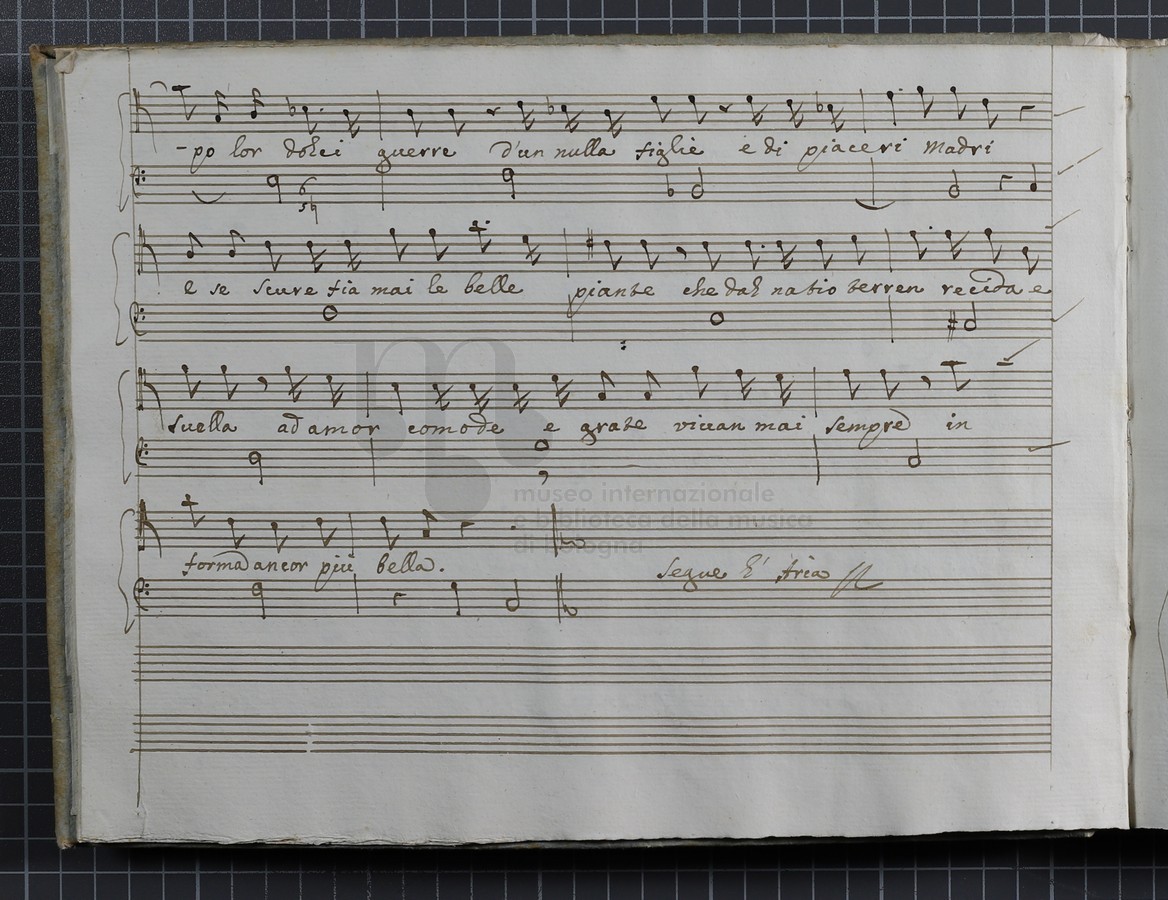 -po lor dolci guerre d'un nulla figlie e di piaceri Madri
5
e se scure fia mai le belle piante che dal natio terren recida e
suella ad amor comode e grate viuan mai sempre in
museo internazionale
e biblioteca della musica
di bologna
forma ancor più bella.
Segue L' Aria